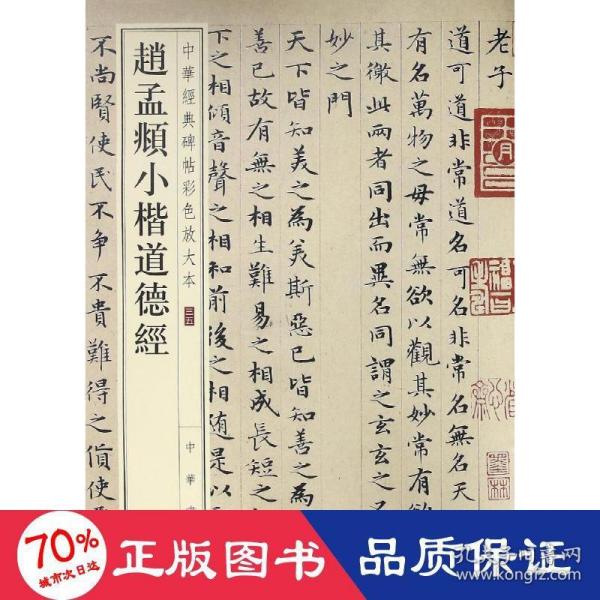 老子
道可道非常道名可名非常名無名天
有名萬物之母常無欲以觀其妙常有欲
其徼此兩者同出而異名同謂之玄玄之又
妙之門
天下皆知美之為美斯惡已皆知善之為
善已故有無之相生難易之相成長短之
下之相傾音聲之相和前後之相随是以
中華經典碑帖彩色放大本
中華
趙孟頫小楷道德經
不尚賢使民不争不貴難得之貨使
70%
城市次日达
正版保障 品质保证